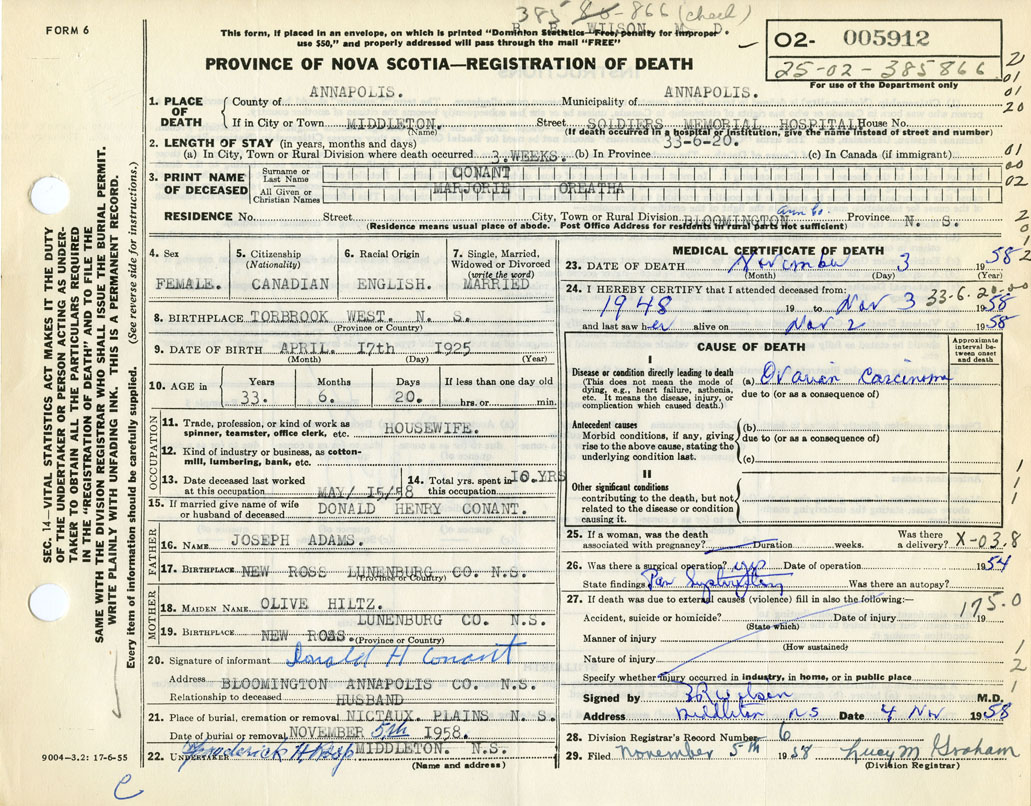 385 80-866 (check)
FORM 6
R. R. WILSON, M. D.
This form, if placed in an envelope, on which is printed "Dominion Statistics—Free, penalty for improper
use $50," and properly addressed will pass through the mail "FREE"
O2- 005912
25-02-385866
For use of the Department only
PROVINCE OF NOVA SCOTIA—REGISTRATION OF DEATH
1. PLACE OF DEATH
County of ANNAPOLIS. Municipality of ANNAPOLIS.
If in City or Town MIDDLETON. Street SOLDIERS MEMORIAL HOSPITAL House No.
(Name) (If death occurred in a hospital or institution, give the name instead of street and number)
2. LENGTH OF STAY (in years, months and days) 33-6-20.
(a) In City, Town or Rural Division where death occurred 3. WEEKS. (b) In Province (c) In Canada (if immigrant)
3. PRINT NAME OF DECEASED
Surname or Last Name CONANT
All Given or Christian Names MARJORIE OREATHA
RESIDENCE No. Street City, Town or Rural Division BLOOMINGTON Ann Co. Province N. S.
(Residence means usual place of abode. Post Office Address for residents in rural parts not sufficient)
4. Sex FEMALE.
5. Citizenship (Nationality) CANADIAN
6. Racial Origin ENGLISH.
7. Single, Married, Widowed or Divorced (write the word) MARRIED
8. BIRTHPLACE TORBROOK WEST. N. S.
(Province or Country)
9. DATE OF BIRTH APRIL. 17th 1925
(Month) (Day) (Year)
10. AGE in Years Months Days If less than one day old
33. 6. 20. hrs. or min.
OCCUPATION
11. Trade, profession, or kind of work as spinner, teamster, office clerk, etc. HOUSEWIFE.
12. Kind of industry or business, as cotton-mill, lumbering, bank, etc.
13. Date deceased last worked at this occupation MAY/ 15/58
14. Total yrs. spent in this occupation 10.YRS
15. If married give name of wife or husband of deceased DONALD HENRY CONANT.
FATHER
16. NAME JOSEPH ADAMS.
17. BIRTHPLACE NEW ROSS LUNENBURG CO. N.S.
(Province or Country)
MOTHER
18. MAIDEN NAME OLIVE HILTZ.
LUNENBURG CO. N.S.
19. BIRTHPLACE NEW ROSS.
(Province or Country)
20. Signature of informant Donald H Conant
Address BLOOMINGTON ANNAPOLIS CO. N.S.
Relationship to deceased HUSBAND
21. Place of burial, cremation or removal NICTAUX. PLAINS N. S.
Date of burial or removal NOVEMBER 5th 1958.
22. UNDERTAKER Frederick MIDDLETON. N.S.
(Name and address)
MEDICAL CERTIFICATE OF DEATH
23. DATE OF DEATH November 3 1958
(Month) (Day) (Year)
24. I HEREBY CERTIFY that I attended deceased from: 33-6-20-00
1948 19 to Nov 3 1958
and last saw her alive on Nov 2 1958
CAUSE OF DEATH
Approximate interval between onset and death
I
Disease or condition directly leading to death
(This does not mean the mode of dying, e.g., heart failure, asthenia, etc. It means the disease, injury, or complication which caused death.)
(a) Ovarian Carcinoma
due to (or as a consequence of)
Antecedent causes
Morbid conditions, if any, giving rise to the above cause, stating the underlying condition last.
(b)
due to (or as a consequence of)
(c)
II
Other significant conditions
contributing to the death, but not related to the disease or condition causing it.
25. If a woman, was the death associated with pregnancy? Duration weeks. Was there a delivery? X-03.8
26. Was there a surgical operation? yes Date of operation 1954
State findings Pan Was there an autopsy?
27. If death was due to external causes (violence) fill in also the following:— 175.0
Accident, suicide or homicide? Date of injury 19
(State which)
Manner of injury
(How sustained)
Nature of injury
Specify whether injury occurred in industry, in home, or in public place
Signed by R R Wilson M.D.
Address Middleton NS Date 4 Nov 1958
28. Division Registrar's Record Number 6
29. Filed November 5th 1958 Lucy M Graham
(Division Registrar)
SEC. 14—VITAL STATISTICS ACT MAKES IT THE DUTY
OF THE UNDERTAKER OR PERSON ACTING AS UNDER-
TAKER TO OBTAIN ALL THE PARTICULARS REQUIRED
IN THE "REGISTRATION OF DEATH" AND TO FILE THE
SAME WITH THE DIVISION REGISTRAR WHO SHALL ISSUE THE BURIAL PERMIT.
WRITE PLAINLY WITH UNFADING INK. THIS IS A PERMANENT RECORD.
Every item of information should be carefully supplied. (See reverse side for instructions.)
9004—3.2: 17-6-55